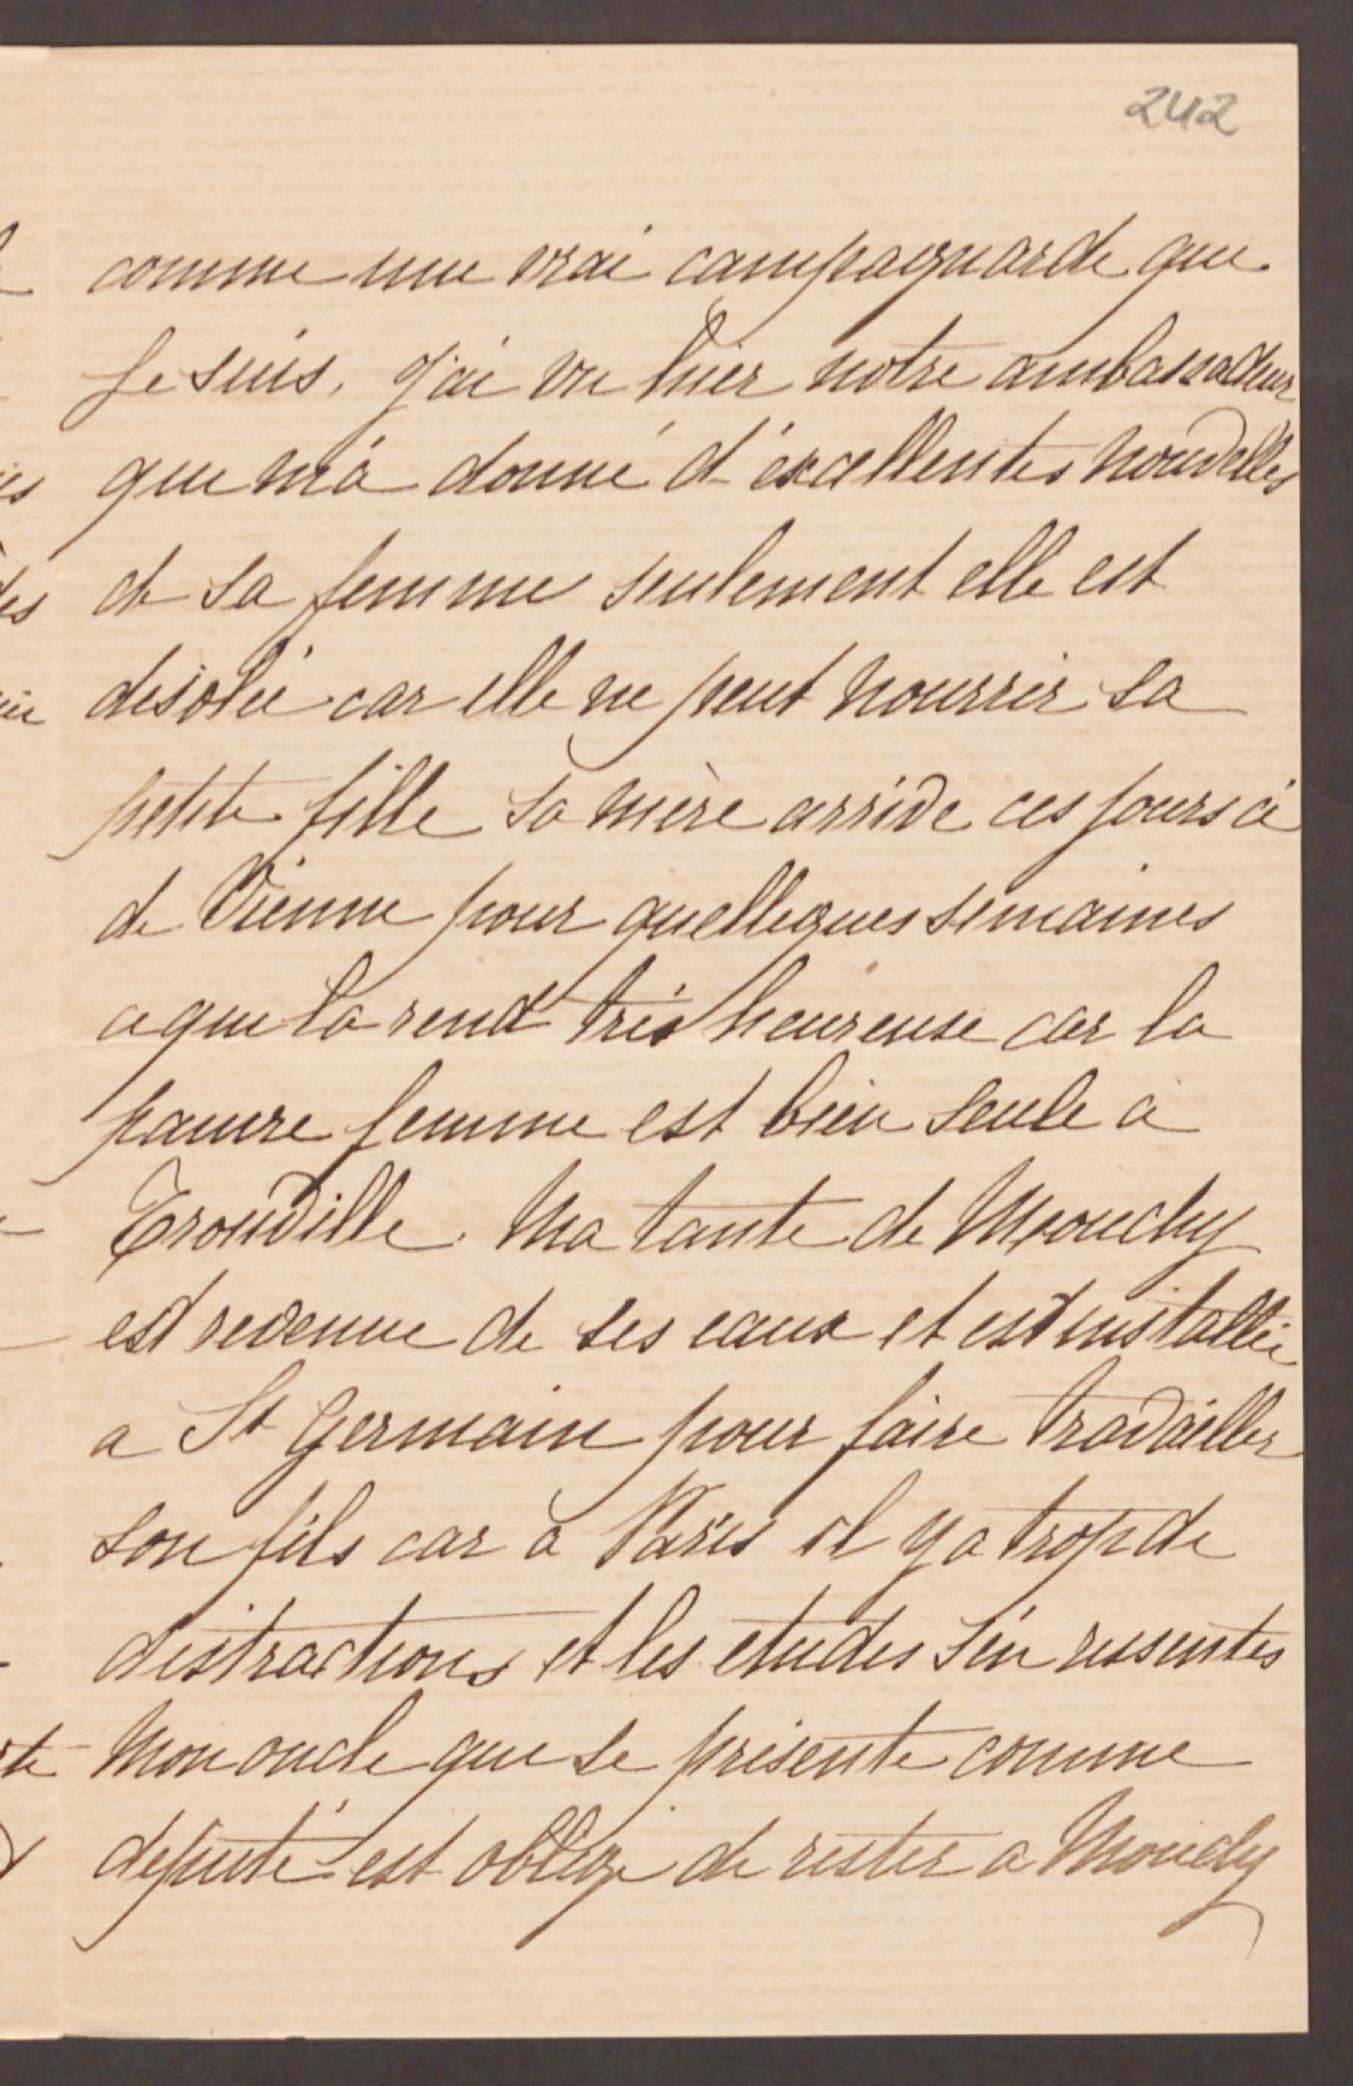 242
comme une vrai campagnarde que
je suis. J'ai vu hier notre ambassadeur
que m'a donné d'éxcellentes nouvelles
de sa femme seulement elle est
desolée car elle ne peut nourrir sa
petite fille sa mère arrive ces jours ci
de Vienne pour quelleques semaines
ce que la rend très heureuse car la
pauvre femme est bien seule à
Trouville. Ma tante de Mouchy
est revenue de ses eaux et est installée
a St Germain pour faire travailler
son fils car a Paris il y a trop de
distractions et les etudes s'en ressentes
Mon oncle que se présente comme
deputé est oblige de rester a Mouchy